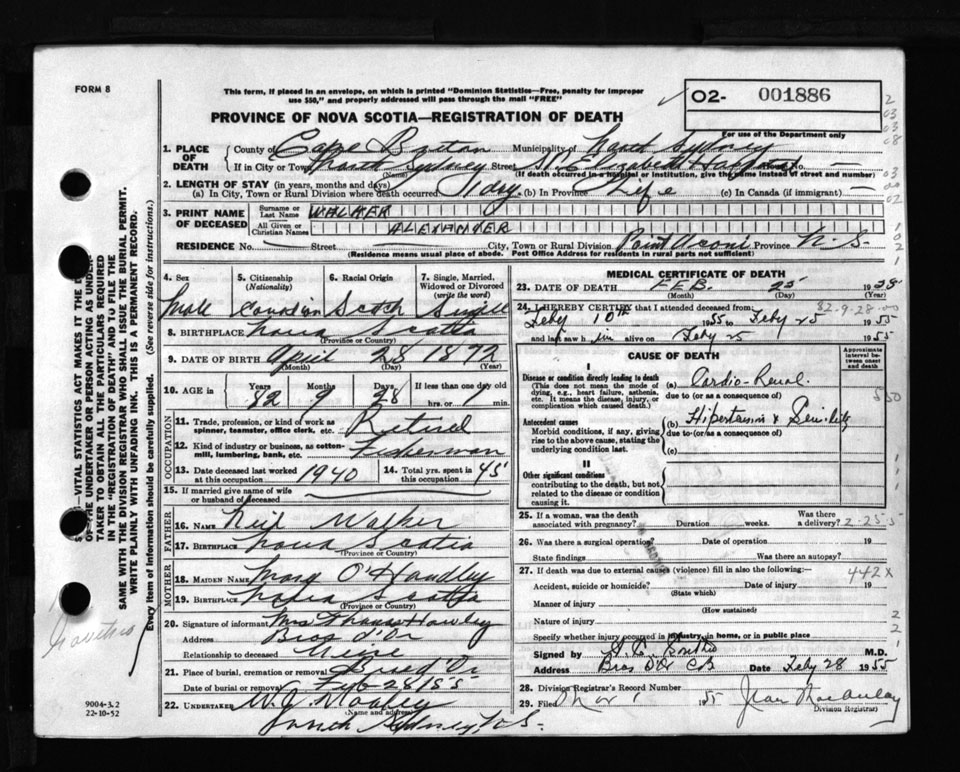 FORM 8
This form, if placed in an envelope, on which is printed "Dominion Statistics—Free, penalty for improper
use $50," and properly addressed will pass through the mail "FREE"
02- 001886
PROVINCE OF NOVA SCOTIA—REGISTRATION OF DEATH
For use of the Department only
1. PLACE OF DEATH County of Cape Breton Municipality of North Sydney
If in City or Town North Sydney Street St. Elizabeth Hospital No. —
(Name) (If death occurred in a hospital or institution, give the name instead of street and number)
2. LENGTH OF STAY (in years, months and days)
(a) In City, Town or Rural Division where death occurred 1 day (b) In Province Life (c) In Canada (if immigrant) —
3. PRINT NAME OF DECEASED Surname or Last Name WALKER
All Given or Christian Names ALEXANDER
RESIDENCE No. — Street — City, Town or Rural Division Point Aconi Province N.S.
(Residence means usual place of abode. Post Office Address for residents in rural parts not sufficient)
4. Sex 5. Citizenship (Nationality) 6. Racial Origin 7. Single, Married, Widowed or Divorced (write the word)
Male Canadian Scotch Single
8. BIRTHPLACE Nova Scotia
(Province or Country)
9. DATE OF BIRTH April 28 1872
(Month) (Day) (Year)
10. AGE in Years Months Days If less than one day old
82 9 28 hrs. or min.
OCCUPATION
11. Trade, profession, or kind of work as spinner, teamster, office clerk, etc. Retired
12. Kind of industry or business, as cotton-mill, lumbering, bank, etc. Fisherman
13. Date deceased last worked at this occupation 1940 14. Total yrs. spent in this occupation 45
15. If married give name of wife or husband of deceased
FATHER
16. Name Neil Walker
17. Birthplace Nova Scotia
(Province or Country)
MOTHER
18. Maiden Name Mary O'Handley
19. Birthplace Nova Scotia
(Province or Country)
20. Signature of informant Mrs Thomas Hawley
Address Bras d'Or
Relationship to deceased Niece
21. Place of burial, cremation or removal Bras d'Or
Date of burial or removal Feb 28/55
22. UNDERTAKER W. J.
(Name and address)
North Sydney N.S.
MEDICAL CERTIFICATE OF DEATH
23. DATE OF DEATH FEB. 25
(Month) (Day) (Year)
24. I HEREBY CERTIFY that I attended deceased from: 82-9-28
Feby 10th 1955 to Feby 25 1955
and last saw him alive on Feby 25 1955
CAUSE OF DEATH
Approximate interval between onset and death
I
Disease or condition directly leading to death (a) Cardio-Renal.
(This does not mean the mode of dying, e.g., heart failure, asthenia, etc. It means the disease, injury, or complication which caused death.)
due to (or as a consequence of)
Antecedent causes (b) Hipertension & Senility
Morbid conditions, if any, giving rise to the above cause, stating the underlying condition last.
due to (or as a consequence of)
(c)
II
Other significant conditions
contributing to the death, but not related to the disease or condition causing it.
25. If a woman, was the death associated with pregnancy? Duration weeks. Was there a delivery? 2-25-5
26. Was there a surgical operation? Date of operation 19
State findings Was there an autopsy?
27. If death was due to external causes (violence) fill in also the following:— 442X
Accident, suicide or homicide? Date of injury 19
(State which)
Manner of injury
(How sustained)
Nature of injury
Specify whether injury occurred in industry, in home, or in public place
Signed by M.D.
Address Bras D'Or CB Date Feby 28 1955
28. Division Registrar's Record Number
29. Filed Mar 1 1955 Jean MacAulay
Division Registrar)
9004-3.2
22-10-52
VITAL STATISTICS ACT MAKES IT THE
THE UNDERTAKER OR PERSON ACTING AS UNDER-
TAKER TO OBTAIN ALL THE PARTICULARS REQUIRED
IN THE "REGISTRATION OF DEATH" AND TO FILE THE
SAME WITH THE DIVISION REGISTRAR WHO SHALL ISSUE THE BURIAL PERMIT.
WRITE PLAINLY WITH UNFADING INK. THIS IS A PERMANENT RECORD.
Every item of information should be carefully supplied. (See reverse side for instructions.)